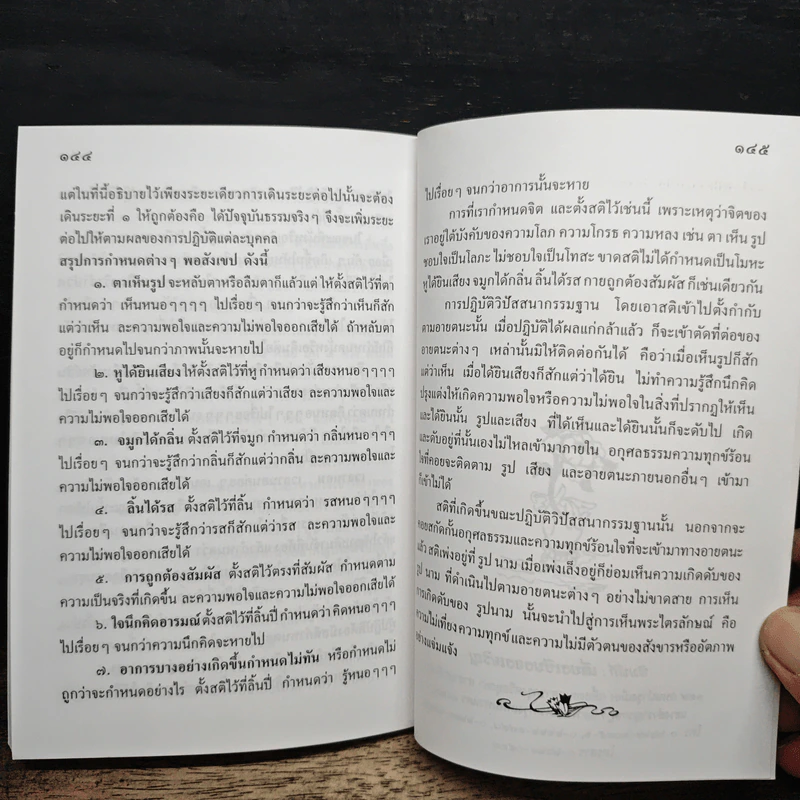 ๑๔๔
แต่ในที่นี้อธิบายไว้เพียงระยะเดียวการเดินระยะต่อไปนั้นจะต้อง
เดินระยะที่ ๑ ให้ถูกต้องคือ ได้ปัจจุบันธรรมจริงๆ จึงจะเพิ่มระยะ
ต่อไปให้ตามผลของการปฏิบัติแต่ละบุคคล
สรุปการกำหนดต่างๆ พอสังเขป ดังนี้
๑. ตาเห็นรูป จะหลับตาหรือลืมตาก็แล้วแต่ ให้ตั้งสติไว้ที่ตา
กำหนดว่า เห็นหนอๆๆๆๆ ไปเรื่อยๆ จนกว่าจะรู้สึกว่าเห็นก็สัก
แต่ว่าเห็น ละความพอใจและความไม่พอใจออกเสียได้ ถ้าหลับตา
อยู่ก็กำหนดไปจนกว่าภาพนั้นจะหายไป
๒. หูได้ยินเสียง ให้ตั้งสติไว้ที่หู กำหนดว่า เสียงหนอๆๆๆ
ไปเรื่อยๆ จนกว่าจะรู้สึกว่าเสียงก็สักแต่ว่าเสียง ละความพอใจและ
ความไม่พอใจออกเสียได้
๓. จมูกได้กลิ่น ตั้งสติไว้ที่จมูก กำหนดว่า กลิ่นหนอๆๆๆ
ไปเรื่อยๆ จนกว่าจะรู้สึกว่ากลิ่นก็สักแต่ว่ากลิ่น ละความพอใจและ
ความไม่พอใจออกเสียได้
๔. ลิ้นได้รส ตั้งสติไว้ที่ลิ้น กำหนดว่า รสหนอๆๆๆ
ไปเรื่อยๆ จนกว่าจะรู้สึกว่ารสก็สักแต่ว่ารส ละความพอใจและ
ความไม่พอใจออกเสียได้
๕. การถูกต้องสัมผัส ตั้งสติไว้ตรงที่สัมผัส กำหนดตาม
ความเป็นจริงที่เกิดขึ้น ละความพอใจและความไม่พอใจออกเสียได้
๖. ใจนึกคิดอารมณ์ ตั้งสติไว้ที่ลิ้นปี่ กำหนดว่า คิดหนอๆๆๆ
ไปเรื่อยๆ จนกว่าความนึกคิดจะหายไป
๗. อาการบางอย่างเกิดขึ้นกำหนดไม่ทัน หรือกำหนดไม่
ถูกว่าจะกำหนดอย่างไร ตั้งสติไว้ที่ลิ้นปี่ กำหนดว่า รู้หนอๆๆๆ
๑๔๕
ไปเรื่อยๆ จนกว่าอาการนั้นจะหาย
การที่เรากำหนดจิต และตั้งสติไว้เช่นนี้ เพราะเหตุว่าจิตของ
เราอยู่ใต้บังคับของความโลภ ความโกรธ ความหลง เช่น ตา เห็น รูป
ชอบใจเป็นโลภะ ไม่ชอบใจเป็นโทสะ ขาดสติไม่ได้กำหนดเป็นโมหะ
หูได้ยินเสียง จมูกได้กลิ่น ลิ้นได้รส กายถูกต้องสัมผัส ก็เช่นเดียวกัน
การปฏิบัติวิปัสสนากรรมฐาน โดยเอาสติเข้าไปตั้งกำกับ
ตามอายตนะนั้น เมื่อปฏิบัติได้ผลแก่กล้าแล้ว ก็จะเข้าตัดที่ต่อของ
อายตนะต่างๆ เหล่านั้นมิให้ติดต่อกันได้ คือว่าเมื่อเห็นรูปก็สัก
แต่ว่าเห็น เมื่อได้ยินเสียงก็สักแต่ว่าได้ยิน ไม่ทำความรู้สึกนึกคิด
ปรุงแต่งให้เกิดความพอใจหรือความไม่พอใจในสิ่งที่ปรากฏให้เห็น
และได้ยินนั้น รูปและเสียง ที่ได้เห็นและได้ยินนั้นก็จะดับไป เกิด
และดับอยู่ที่นั้นเองไม่ไหลเข้ามาภายใน อกุศลธรรมความทุกข์ร้อน
ใจที่คอยจะติดตาม รูป เสียง และอายตนะภายนอกอื่นๆ เข้ามา
ก็เข้าไม่ได้
สติที่เกิดขึ้นขณะปฏิบัติวิปัสสนากรรมฐานนั้น นอกจากจะ
คอยสกัดกั้นอกุศลธรรมและความทุกข์ร้อนใจที่จะเข้ามาทางอายตนะ
แล้ว สติเพ่งอยู่ที่ รูป นาม เมื่อเพ่งเล็งอยู่ก็ย่อมเห็นความเกิดดับของ
รูป นาม ที่ดำเนินไปตามอายตนะต่างๆ อย่างไม่ขาดสาย การเห็น
การเกิดดับของ รูปนาม นั้นจะนำไปสู่การเห็นพระไตรลักษณ์ คือ
ความไม่เที่ยงความทุกข์และความไม่มีตัวตนของสังขารหรืออัตภาพ
อย่างแจ่มแจ้ง